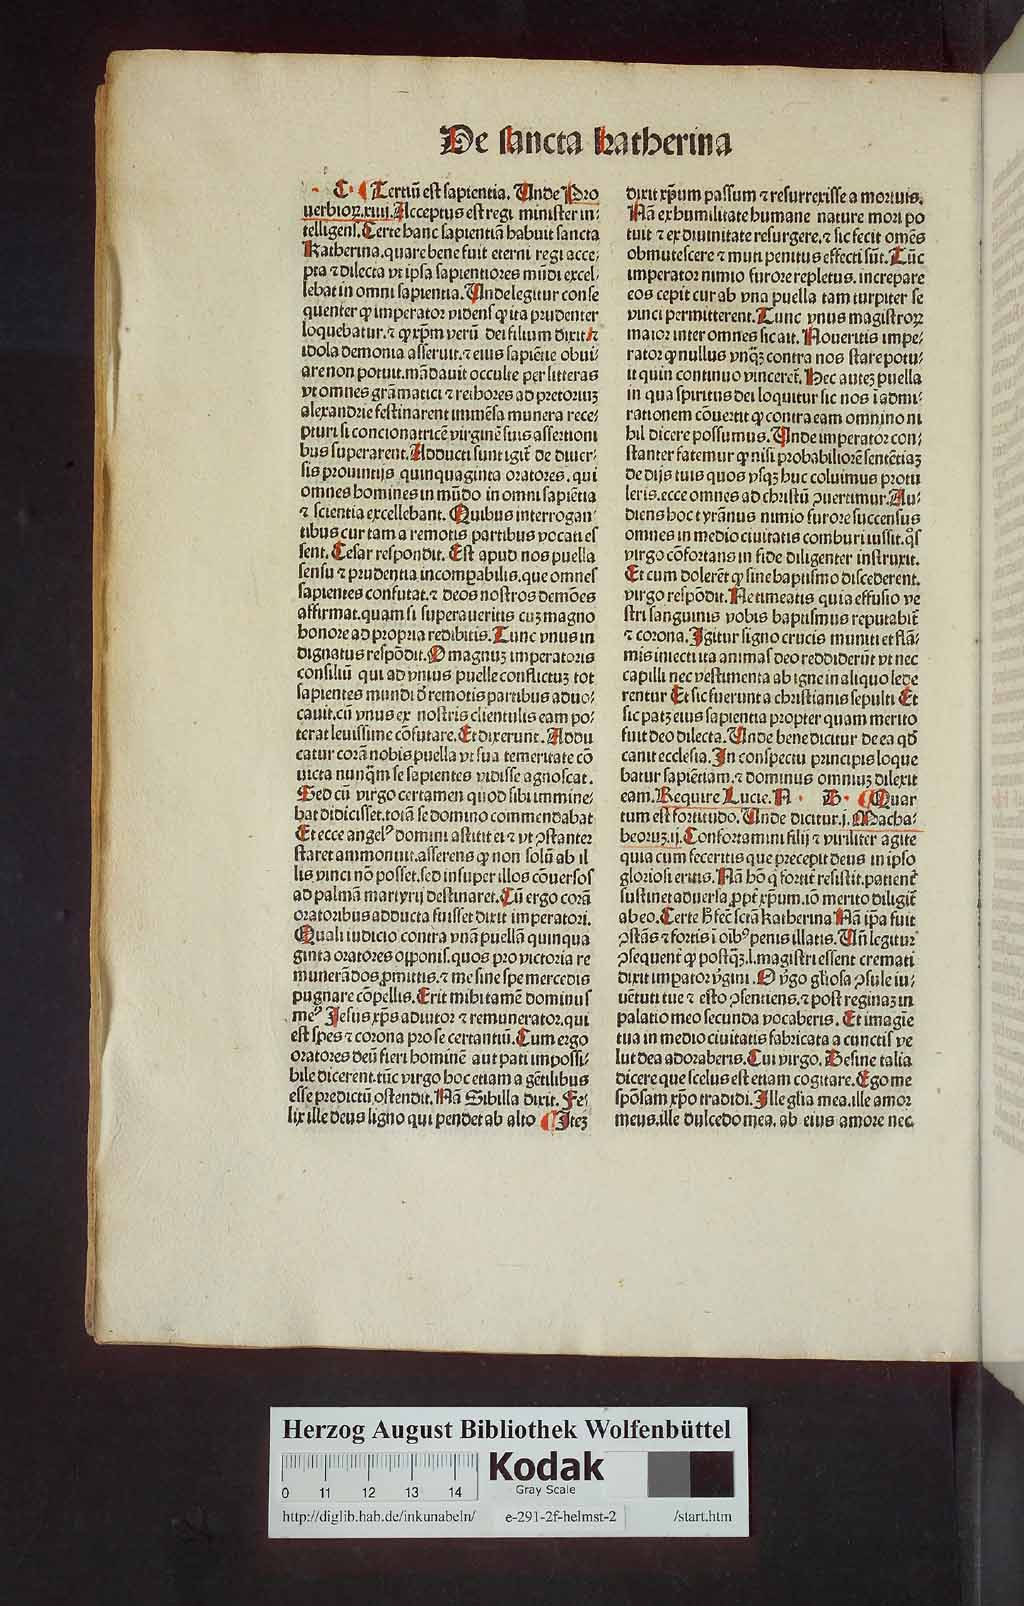 De sancta katherina
C. ¶ Tertiū est sapientia. Unde Pro
uerbioꝝ.xiiij. Acceptus est regi minister in⸗
telligens. Certe hanc sapientiā habuit sancta
Katherina. quare bene fuit eterni regi acce⸗
pta ⁊ dilecta vt ipsa sapientiores mūdi excel⸗
lebat in omni sapientia. Unde legitur conse
quenter ꝙ imperator videns ꝙ ita prudenter
loquebatur. ⁊ ꝙ xp̄m verū dei filium dixit ⁊
idola demonia asseruit. ⁊ eius sapiētie obui⸗
are non potuit. mādauit occulte per litteras
vt omnes grāmatici ⁊ rethores ad pretoriuꝫ
alexandrie festinarent immēsa munera rece⸗
pturi si concionatricē virginē suis assertioni
bus superarent. Adducti sunt igit̄ de diuer⸗
sis prouintijs quinquaginta oratores. qui
omnes homines in mūdo in omni sapiētia
⁊ scientia excellebant. Quibus interrogan⸗
tibus cur tam a remotis partibus vocati es
sent. Cesar respondit. Est apud nos puella
sensu ⁊ prudentia incomꝑabilis. que omnes
sapientes confutat. ⁊ deos nostros demōes
affirmat. quam si superaueritis cuꝫ magno
honore ad propria redibitis. Tunc vnus in
dignatus respōdit. O magnuꝫ imperatoris
consiliū qui ad vnius puelle conflictuꝫ tot
sapientes mundi d̄ remotis partibus aduo⸗
cauit. cū vnus ex nostris clientulis eam po⸗
terat leuissime cōfutare. Et dixerunt. Addu
catur corā nobis puella vt sua temeritate cō
uicta nunq̄m se sapientes vidisse agnoscat.
Sed cū virgo certamen quod sibi immine⸗
bat didicisset. totā se domino commendabat
Et ecce angelꝰ domini astitit ei ⁊ vt ꝯstanter
staret ammonuit. asserens ꝙ non solū ab il
lis vinci nō posset. sed insuper illos cōuersos
ad palmā martyrij destinaret. Cū ergo corā
oratoribus adducta fuisset dixit imperatori.
Quali iudicio contra vnā puellā quinqua
ginta oratores opponis. quos pro victoria re
munerādos ꝓmittis. ⁊ me sine spe mercedis
pugnare cōpellis. Erit mihi tamē dominus
meꝰ Jesus xp̄s adiutor ⁊ remunerator. qui
est spes ⁊ corona pro se certantiū. Cum ergo
oratores deū fieri hominē aut pati impossi⸗
bile dicerent. tūc virgo hoc etiam a gētilibus
esse predictū ostendit. Nā Sibilla dixit. Fe⸗
lix ille deus ligno qui pendet ab alto ¶ Iteꝫ
dixit xp̄um passum ⁊ resurrexisse a mortuis.
Nā ex humilitate humane nature mori po
tuit ⁊ ex diuinitate resurgere. ⁊ sic fecit omēs
obmutescere ⁊ muti penitus effecti sūt. Tūc
imperator nimio furore repletus. increpare
eos cepit cur ab vna puella tam turpiter se
vinci permitterent. Tunc vnus magistroꝝ
maior inter omnes sic ait. Noueritis impe⸗
rator ꝙ nullus vnq̄ꝫ contra nos stare potu⸗
it quin continuo vinceret̄. Hec auteꝫ puella
in qua spiritus dei loquitur sic nos ī admi⸗
rationem cōuertit ꝙ contra eam omnino ni
hil dicere possumus. Unde imperator con⸗
stanter fatemur ꝙ nisi probabiliorē sentētiaꝫ
de dijs tuis quos vsqꝫ huc coluimus protu
leris. ecce omnes ad christū ꝯuertimur. Au⸗
diens hoc tyrānus nimio furore succensus
omnes in medio ciuitatis comburi iussit. qͦs
virgo cōfortans in fide diligenter instruxit.
Et cum dolerēt ꝙ sine baptismo discederent.
virgo respōdit. Ne timeatis quia effusio ve
stri sanguinis vobis baptismus reputabit̄
⁊ corona. Igitur signo crucis muniti et flā⸗
mis iniecti ita animas deo reddiderūt vt nec
capilli nec vestimenta ab igne in aliquo lede
rentur Et sic fuerunt a christianis sepulti Et
sic patꝫ eius sapientia propter quam merito
fuit deo dilecta. Unde bene dicitur de ea qd̄
canit ecclesia. In conspectu principis loque
batur sapiētiam. ⁊ dominus omniuꝫ dilexit
eam. Require Lucie. A. D. ¶ Quar
tum est fortitudo. Unde dicitur .j. Macha⸗
beoruꝫ.ij. Confortamini filij ⁊ viriliter agite
quia cum feceritis que precepit deus in ipso
gloriosi eritis. Nā hō q̄ fortit̄ resistit. patient̄
sustinet aduersa ꝓpt̄ xp̄um. iō merito diligit̄
ab eo. Certe h̄ fec̄ sctā Katherina Nā ip̄a fuit
ꝯstās ⁊ fortis ī oībꝰ penis illatis. Un̄ legitur
ꝯsequent̄ ꝙ postq̄ꝫ.l. magistri essent cremati
dixit imꝑator v̄gini. O v̄go gl̄iosa ꝯsule iu⸗
uētuti tue ⁊ esto ꝯsentiens. ⁊ post reginaꝫ in
palatio meo secunda vocaberis. Et imagīe
tua in medio ciuitatis fabricata a cunctis ve
lut dea adoraberis. Cui virgo. Desine talia
dicere que scelus est etiam cogitare. Ego me
spōsam xp̄o tradidi. Ille glīa mea. ille amor
meus. ille dulcedo mea. ab eius amore nec
Herzog August Bibliothek Wolfenbüttel
0 11 12 13 14
Kodak
Gray Scale
http://diglib.hab.de/inkunabeln/ e-291-2f-helmst-2 /start.htm